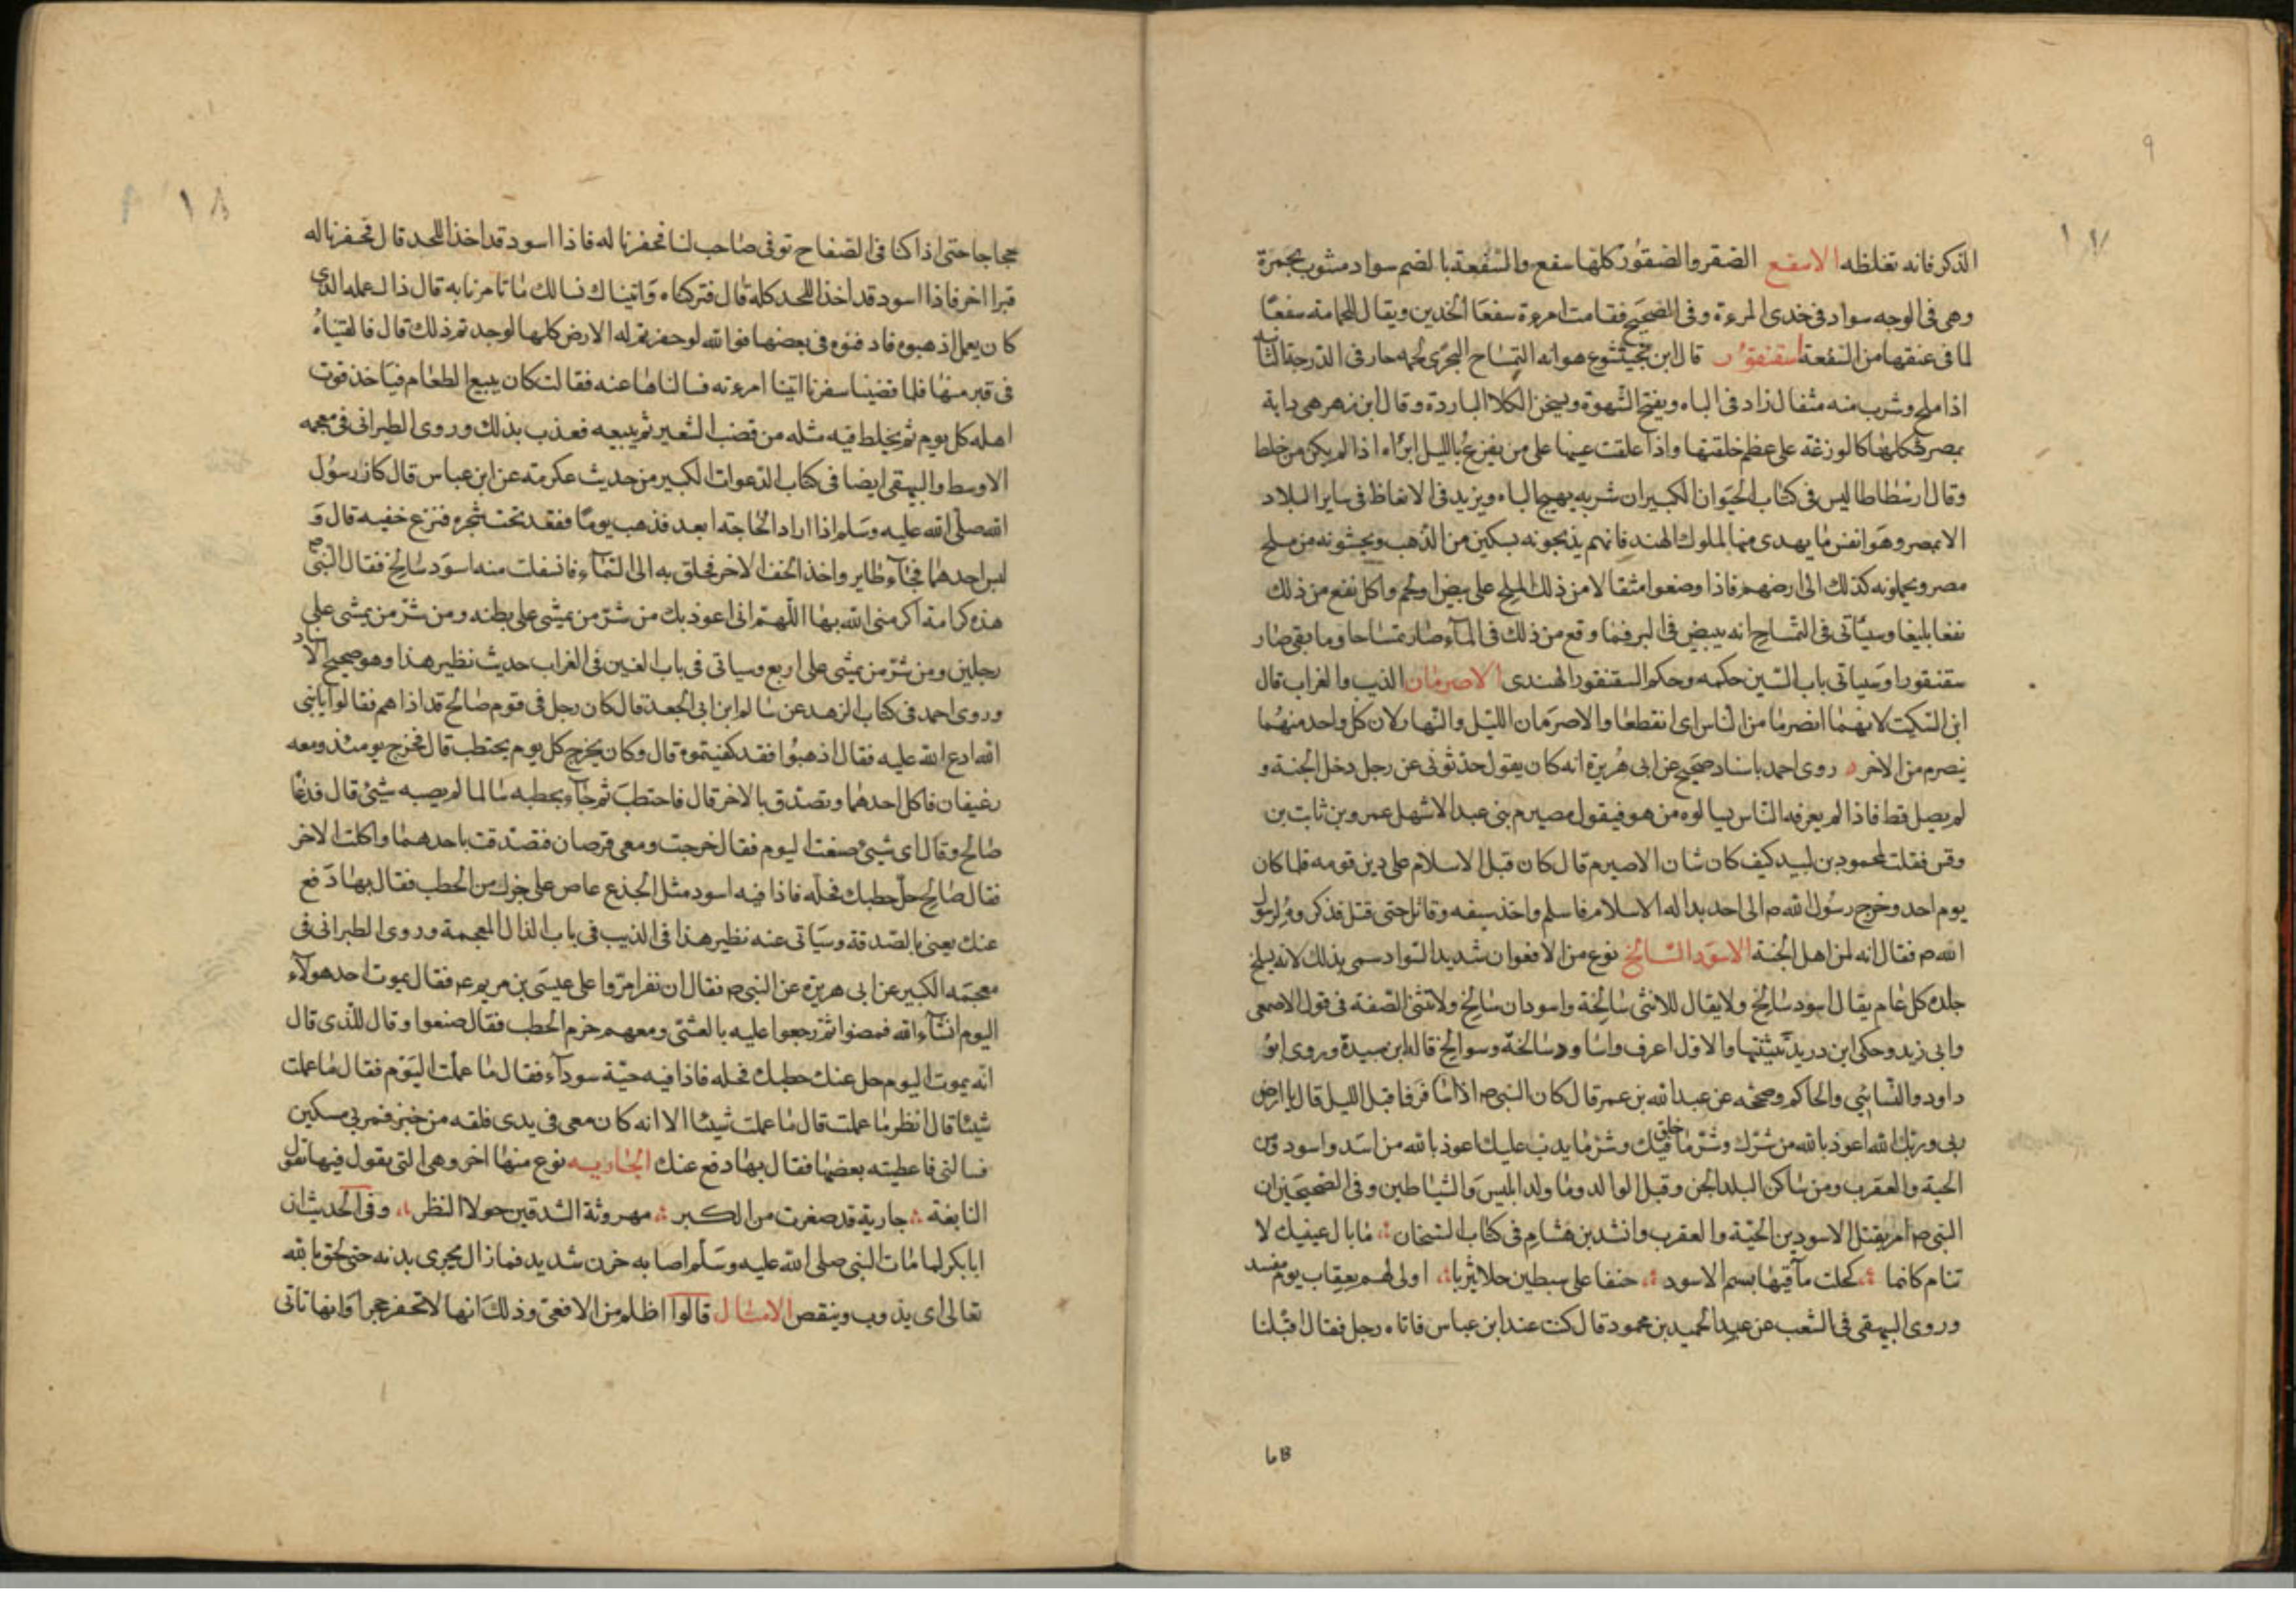 ٩
١٧
الذكر فانه تغلظه الاسقع الصقر والصقور كلها سفع والسفعة بالضم سواد مشوب بحمرة
وهى فى الوجه سواد فى خدى المرءة وفى الصحيح فقامت امرءة سفعا الخدين ويقال للحمامة سفعا
لما فى عنقها من السفعة اسقنقور قال ابن بختيشوع هو انه التمساح البحرى لحمه حار فى الدرجة الثانيه
اذا ملح وشرب منه مثقال زاد فى الباه ويفتح الشهوة ويسخن الكلا الباردة وقال ابن زهر هى دابة
بمصر شكلها كالوزغة على عظم خلقتها واذا علقت عينها على من يفزع بالليل ابراه اذا لم يكن من خلط
وقال ارسطاطاليس فى كتاب الحيوان الكبير ان شربه يهيج الباه ويزيد فى الانعاظ فى ساير البلاد
الا بمصر وهو انفس ما يهدى منها لملوك الهند فانهم يذبحونه بسكين من الذهب ويحشونه من ملح
مصر ويحملونه كذلك الى ارضهم فاذا وضعوا مثقالا من ذلك الملح على بيض او لحم واكل نفع من ذلك
نفعا بليغا وسيأتى فى التمساح انه يبيض فى البر فما وقع من ذلك فى الماء صار تمساحا وما بقى صار
سقنقورا وسياتى باب السين حكمه وحكم السقنقور الهندى الاصرمان الذيب والغراب قال
ابن السكيت لانهما انصرما من الناس اى انقطعا والاصرمان الليل والنهار لان كل واحد منهما
ينصرم من الاخر روى احمد باسناد صحيح عن ابى هريرة انه كان يقول حدثونى عن رجل دخل الجنة و
لم يصل قط فاذا لم يعرفه الناس يسالوه من هو فيقول مصيرم بنى عبد الاشهل عمرو بن ثابت بن
وقس فقلت لمحمود بن لبيد كيف كان شان الاصيرم قال كان قبل الاسلام على دين قومه فلما كان
يوم احد وخرج رسول الله ص الى احد بدا له الاسلام فاسلم واخذ سيفه وقاتل حتى قتل فذكروه لرسول
الله ص فقال انه لمن اهل الجنة الاسود السالخ نوع من الافعوان شديد السواد سمى بذلك لانه يسلخ
جلده كل عام يقال اسود سالخ ولا يقال للانثى سالخة واسودان سالخ ولا تثنى الصفة فى قول الاصمعى
وابى زيد وحكى ابن دريد تثنيتها والاول اعرف واساود سالخة وسوالخ قاله ابن سيدة وروى ابو
داود والنسائى والحاكم وصححه عن عبد الله بن عمر قال كان النبى ص اذا سافر فاقبل الليل قال يا ارض
ربى وربك الله اعوذ بالله من شرك وشر ما فيك وشر ما خلق وشر ما يدب عليك اعوذ بالله من اسد واسود ومن
الحية والعقرب ومن ساكن البلد الجن وقيل الوالد وما ولد ابليس والشياطين وفى الصحيحين ان
النبى ص امر بقتل الاسودين الحية والعقرب وانشد بن هشام فى كتاب التيجان ما بال عينيك لا
تنام كانما كحلت مآقيها بسم الاسود حنفا على سبطين حلا يثربا اولى لهم بعقاب يوم مفسد
وروى البيهقى فى الشعب عن عبد الحميد بن محمود قال كنت عند ابن عباس فاتاه رجل فقال اقبلنا
١٨
حجاجا حتى اذا كنا فى الصفاح توفى صاحب لنا فحفرنا له فاذا اسود قد اخذ اللحد قال فحفرنا له
قبرا اخر فاذا اسود قد اخذ اللحد كله قال فتركناه واتيناك نسالك ما تامرنا به قال ذاك عمله الذى
كان يعمل اذهبوه فادفنوه فى بعضها فوالله لو حفرتم له الارض كلها لوجدتم ذلك قال فالقيناه
فى قبر منها فلما قضينا سفرنا اتينا امرءته فسالناها عنه فقالت كان يبيع الطعام فياخذ قوت
اهله كل يوم ثم يخلط فيه مثله من قضب الشعير ثم يبيعه فعذب بذلك وروى الطبرانى فى معجمه
الاوسط والبيهقى ايضا فى كتاب الدعوات الكبير من حديث عكرمته عن ابن عباس قال كان رسول
الله صلى الله عليه وسلم اذا اراد الحاجته ابعد فذهب يوما فقعد تحت شجره فنزع خفيه قال و
لبس احدهما فجاء طاير واخذ الخف الاخر فحلق به الى السماء فانسلت منه اسود سالخ فقال النبى ص
هذه كرامة اكرمنى الله بها اللهم انى اعوذ بك من شر من يمشى على بطنه ومن شر من يمشى على
رجلين ومن شر من يمشى على اربع وسياتى فى باب الغين فى الغراب حديث نظير هذا وهو صحيح الاسناد
وروى احمد فى كتاب الزهد عن سالم ابن ابى الجعد قال كان رجل فى قوم صالح قد اذاهم فقالوا يا نبى
الله ادع الله عليه فقال اذهبوا فقد كفيتموه قال وكان يخرج كل يوم يحتطب قال فخرج يومئذ ومعه
رغيفان فاكل احدهما وتصدق بالاخر قال فاحتطب ثم جاء بحطبه سالما لم يصبه شىء قال فدعا
صالح وقال اى شىء صنعت اليوم فقال خرجت ومعى قرصان فتصدقت باحدهما واكلت الاخر
فقال صالح حل حطبك فحله فاذا فيه اسود مثل الجذع عاض على جزل من الحطب فقال بها دفع
عنك يعنى بالصدقة وسياتى عنه نظير هذا فى الذيب فى باب الذال المعجمة وروى الطبرانى فى
معجمه الكبير عن ابى هريرة عن النبى ص فقال ان نفرا مروا على عيسى بن مريم ع فقال يموت احد هولاء
اليوم انشاء الله فمضوا ثم رجعوا عليه بالعشى ومعهم حزم الحطب فقال ضعوا وقال للذى قال
انه يموت اليوم حل عنك حطبك فحله فاذا فيه حية سوداء فقال ما عملت اليوم فقال ما عملت
شيئا قال انظر ما عملت قال ما عملت شيئا الا انه كان معى فى يدى فلقه من خبز فمر بى مسكين
فسالنى فاعطيته بعضها فقال بها دفع عنك الجاريه نوع منها اخر وهى التى يقول فيها تقول
النابغة جارية قد صغرت من الكبر مهروثة الشدقين حولا النظر وفى الحديث ان
ابا بكر لما مات النبى صلى الله عليه وسلم اصابه حزن شديد فما زال يجرى بدنه حتى لحق بالله
تعالى اى يذوب وينقص الامثال قالوا اظلم من الافعى وذلك انها لا تحفر حجرا وانها تاتى